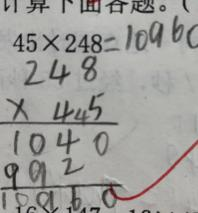 计算下面各题。(
45×248=10960
248
× 445
1040
992
10960
16×147